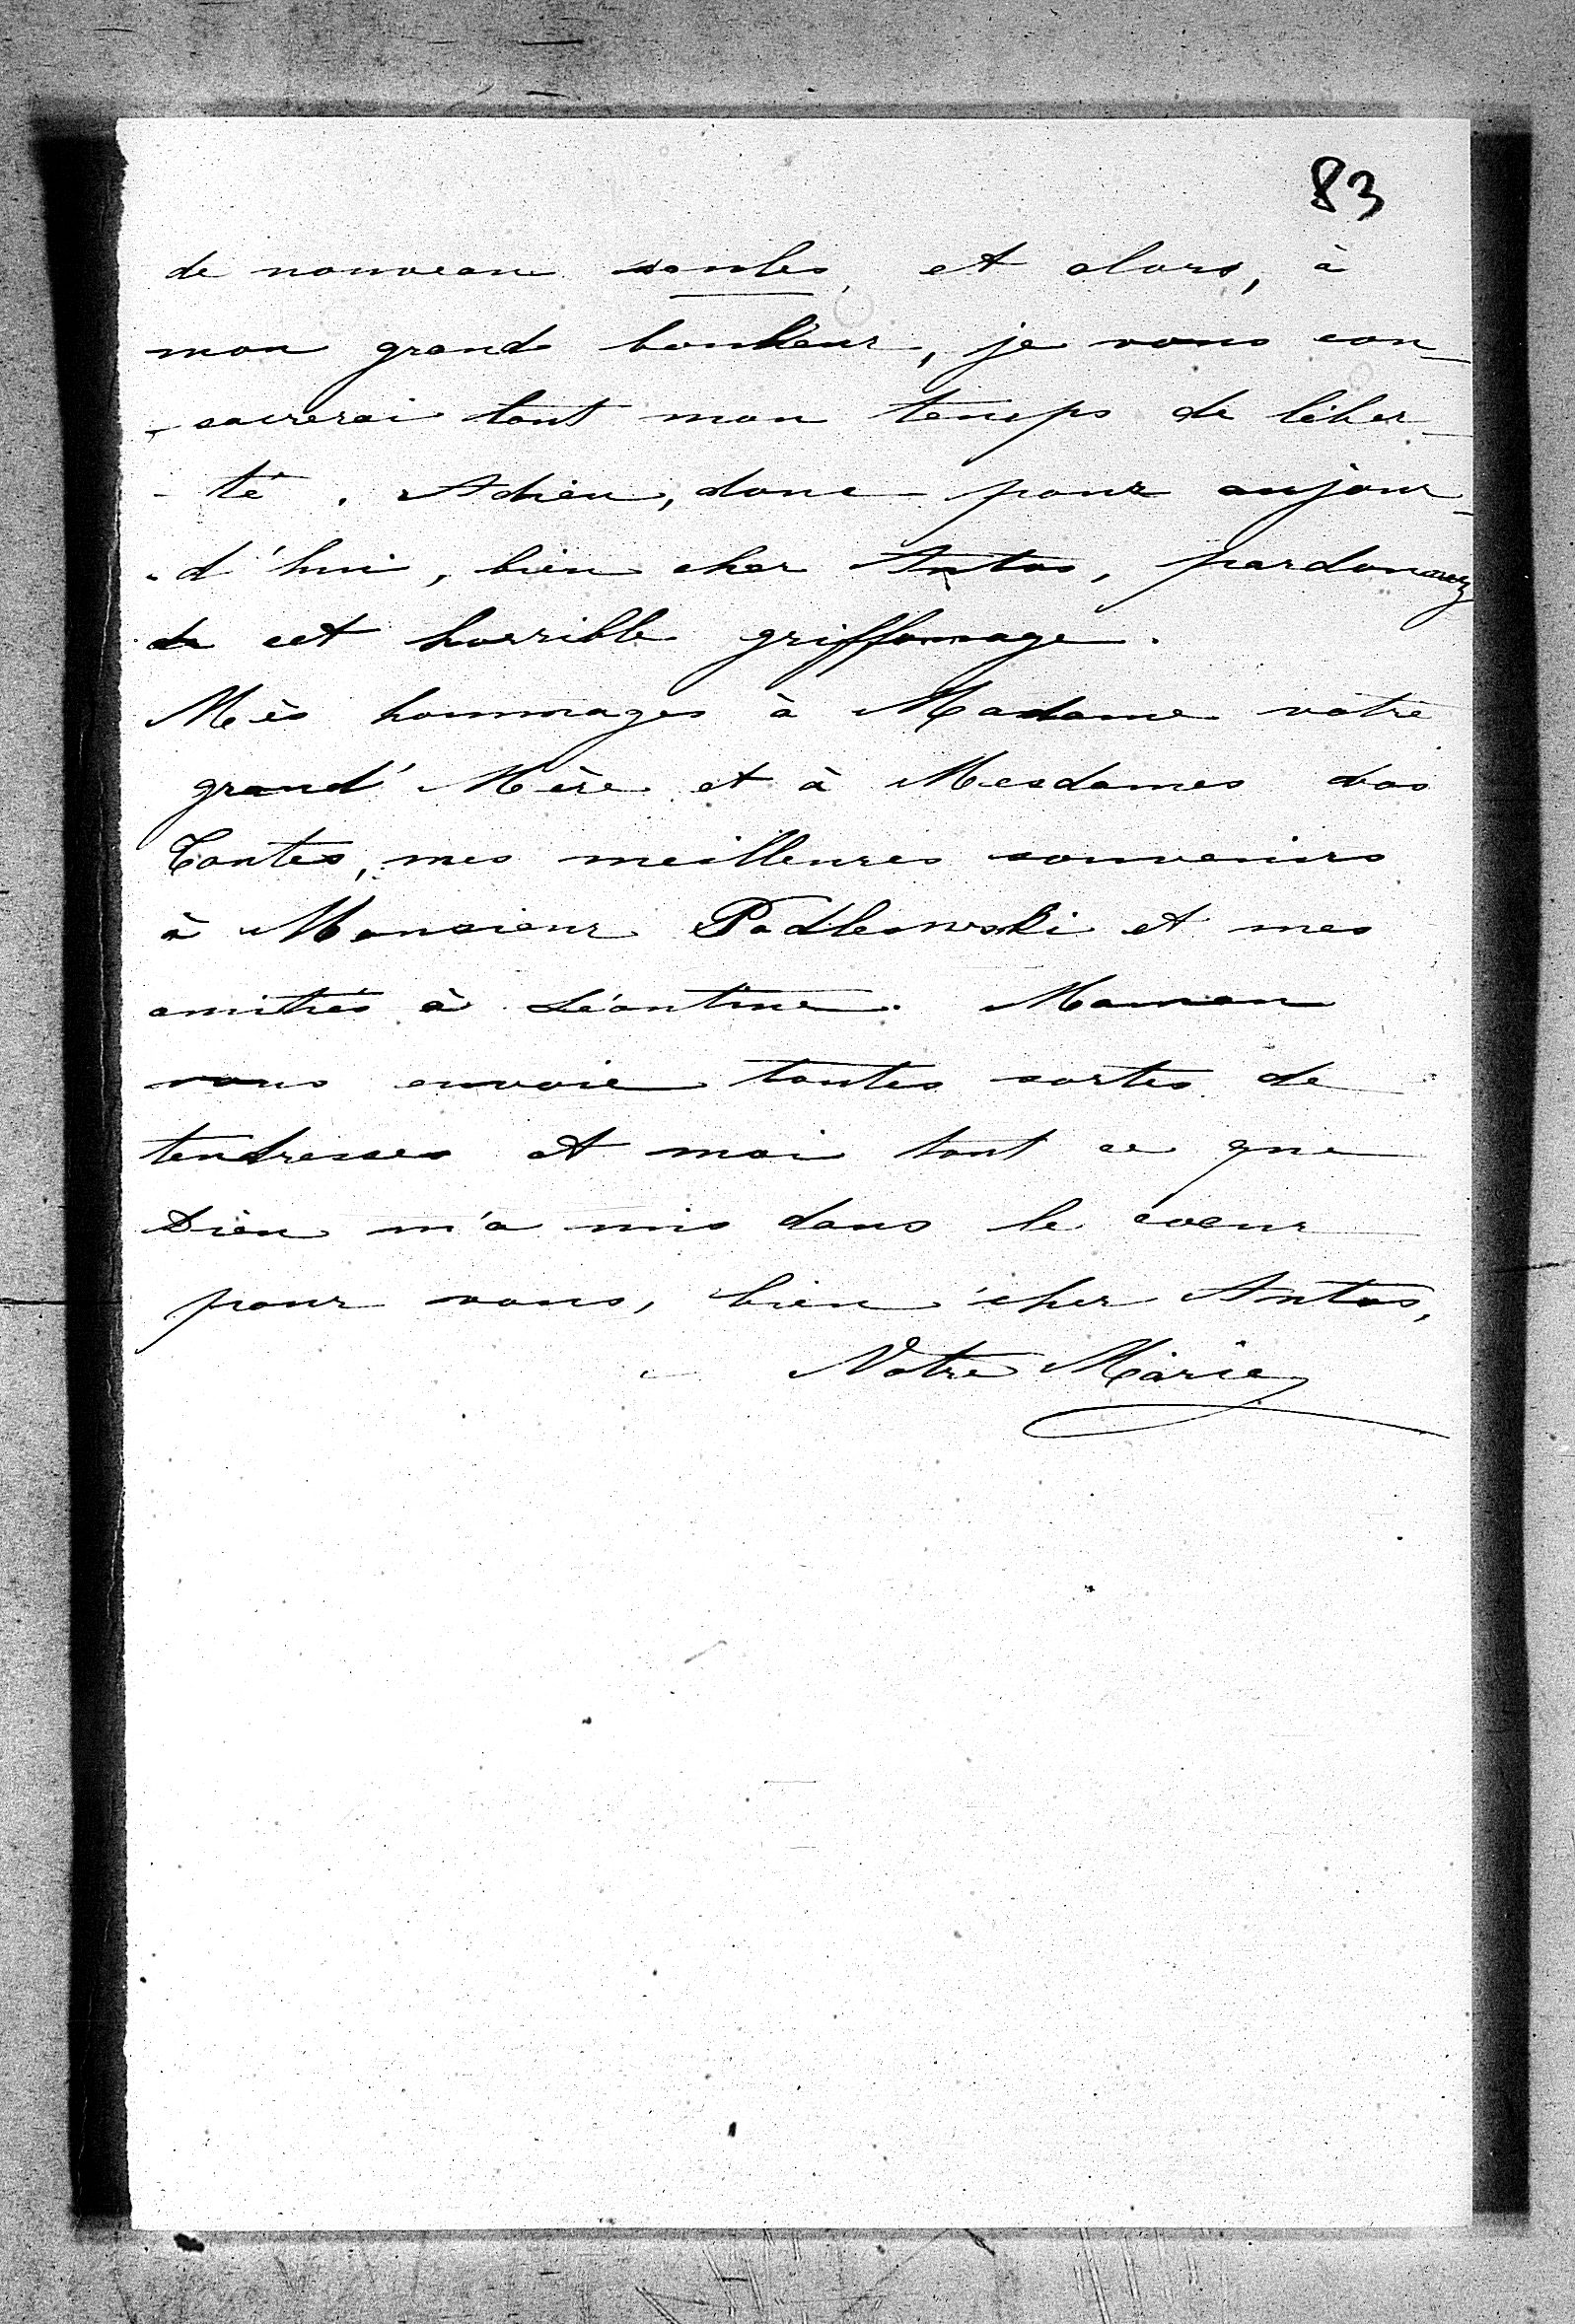 83
de nouveau seules, et alors, à
mon grand bonheur, je vous con-
-sacrerai tout mon temps de liber-
-té. Adieu, donc pour aujour-
-d'hui, bien cher Antos, pardonnez
de cet horrible griffonnage.
Mes hommages à Madame votre
grand' Mère et à Mesdames vos
Tantes, mes meilleures souvenirs
à Monsieur Podlewski et mes
amitiés à Léontine. Maman
vous envoie toutes sortes de
tendresses et moi tout ce que
Dieu m'a mis dans le coeur
pour vous, bien cher Antos,
Votre Marie